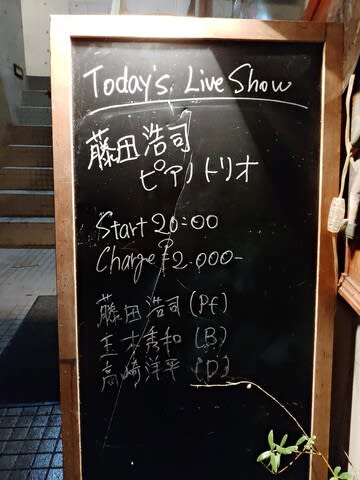 Today's Live Show
藤田 浩司
ピアノトリオ
Start 20:00
Charge ¥2.000-
藤田 浩司 (Pf)
秀和 (B)
高崎洋平 (D)